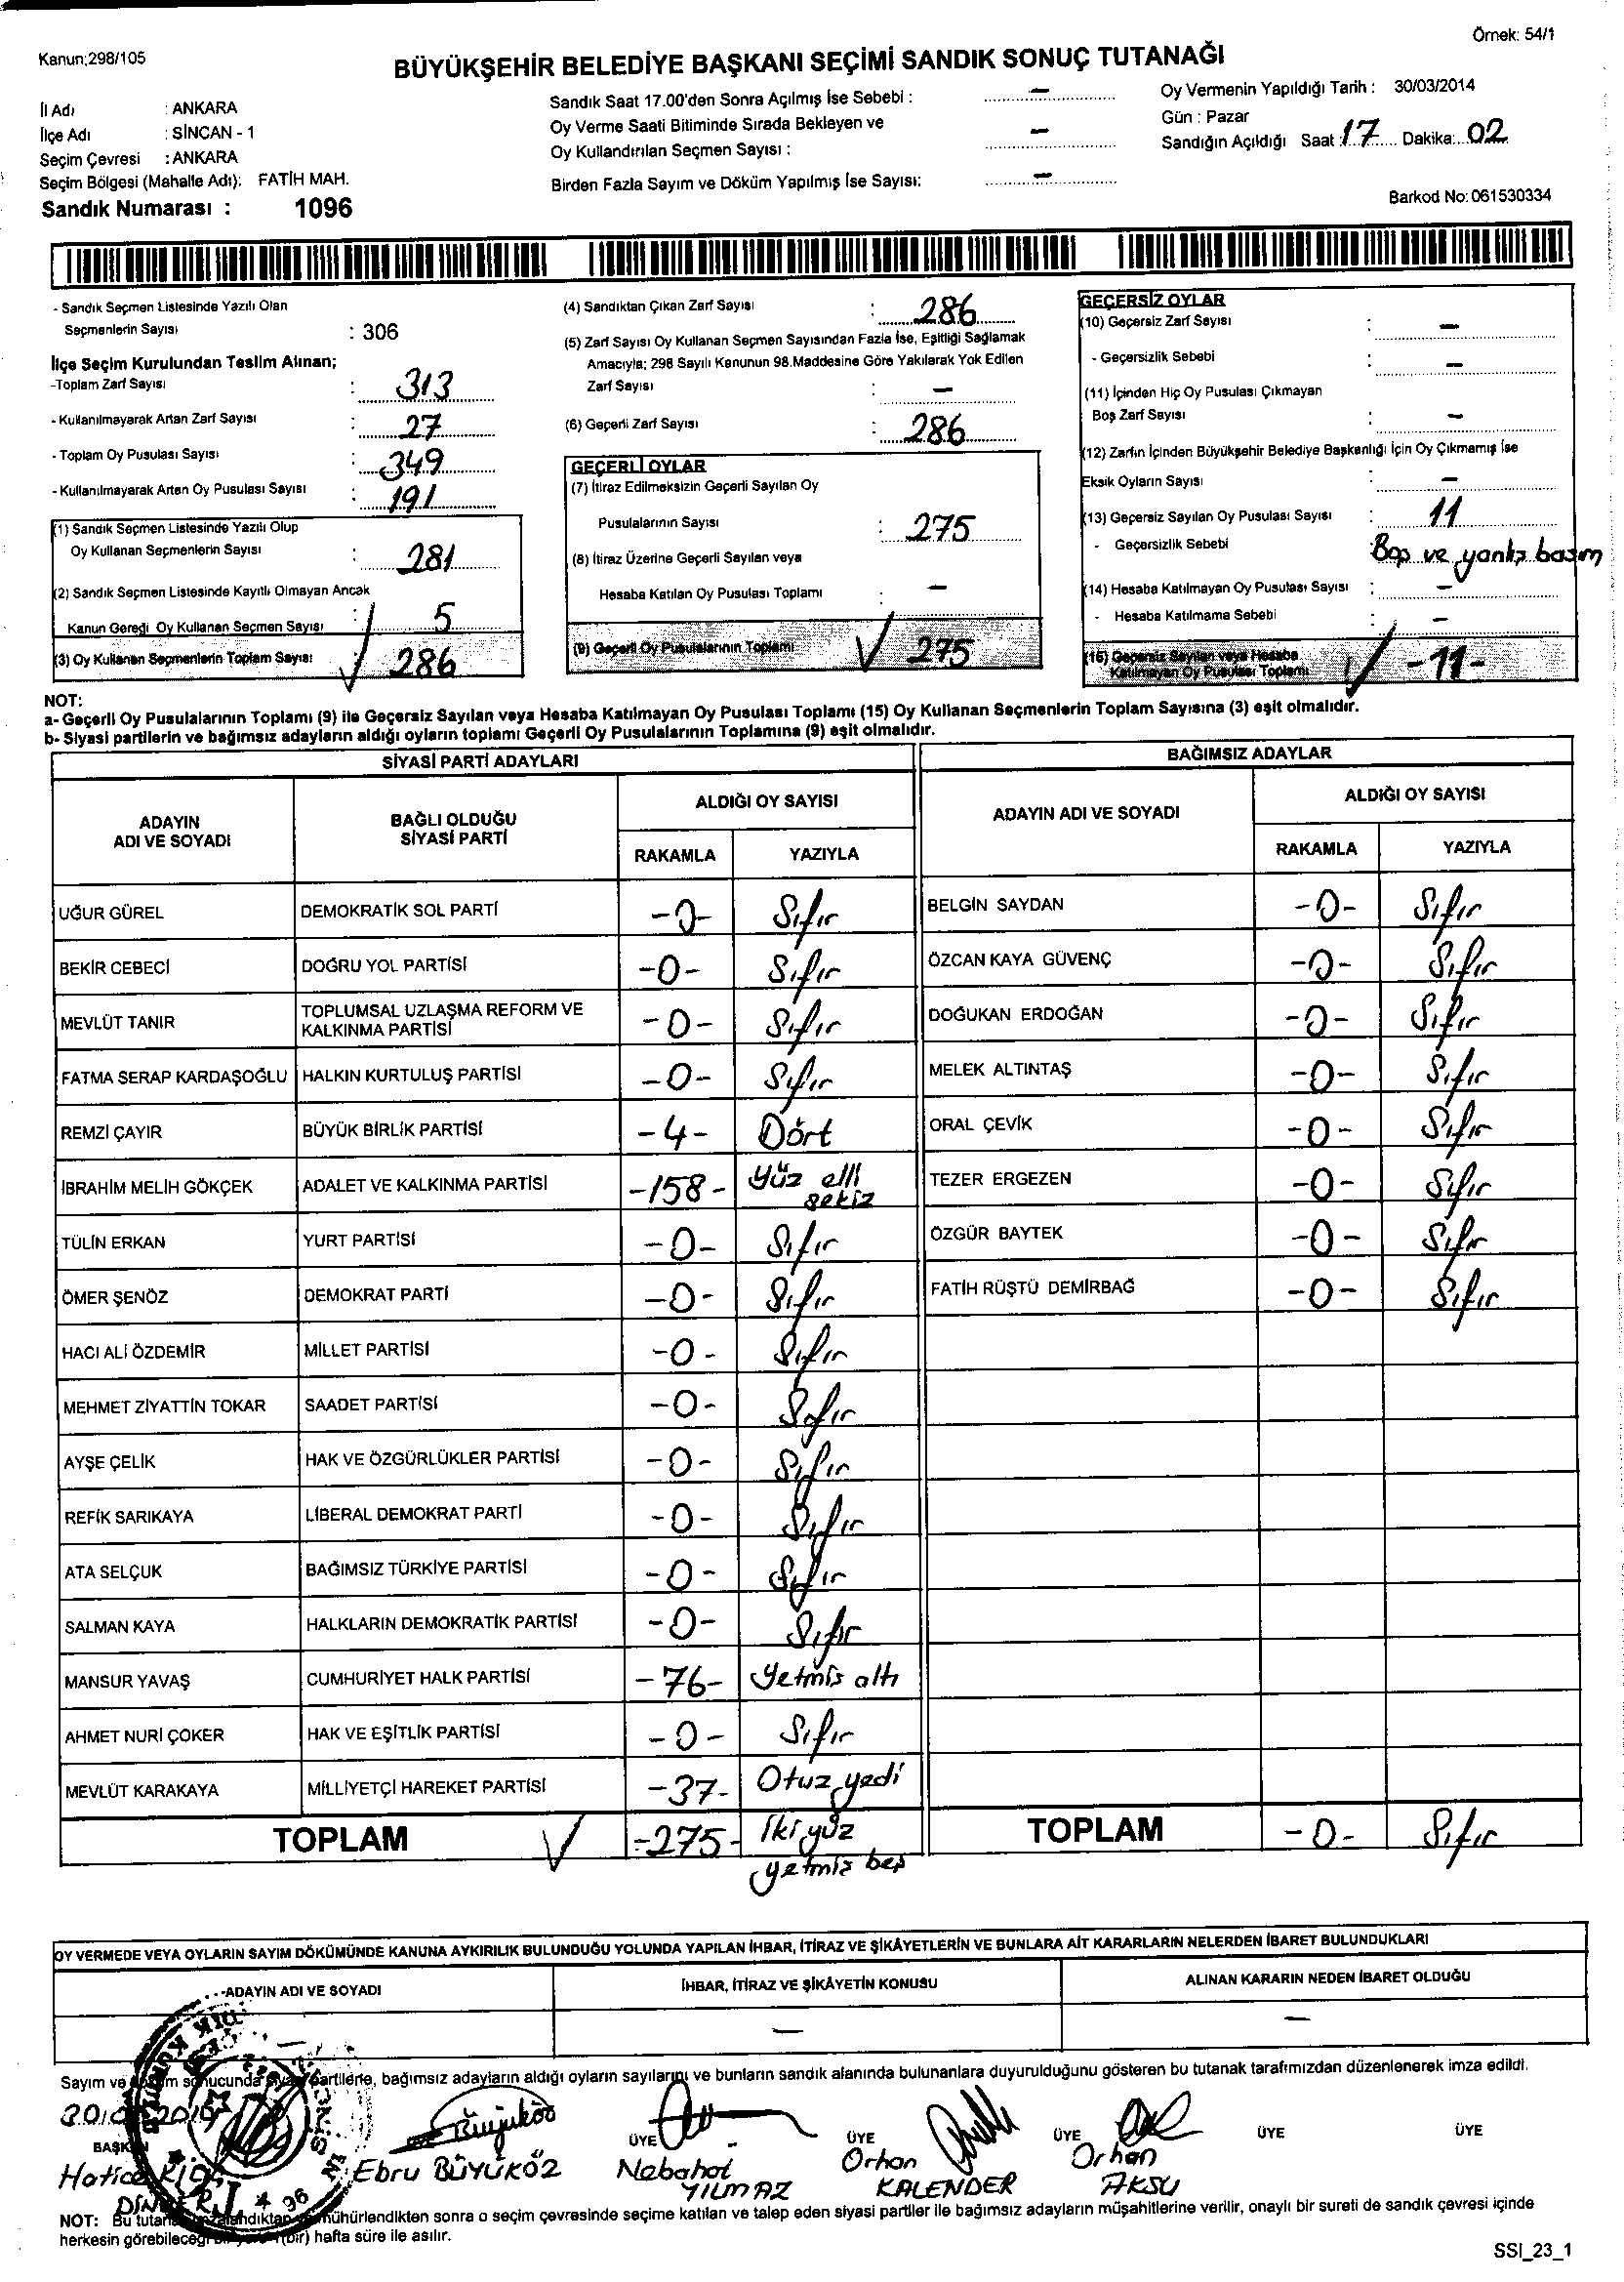 Örnek: 54/1
Kanun;298/105
BÜYÜKŞEHİR BELEDİYE BAŞKANI SEÇİMİ SANDIK SONUÇ TUTANAĞI
İl Adı : ANKARA
İlçe Adı : SİNCAN - 1
Seçim Çevresi : ANKARA
Seçim Bölgesi (Mahalle Adı): FATİH MAH.
Sandık Numarası : 1096
Sandık Saat 17.00'den Sonra Açılmış İse Sebebi : –
Oy Verme Saati Bitiminde Sırada Bekleyen ve
Oy Kullandırılan Seçmen Sayısı : –
Birden Fazla Sayım ve Döküm Yapılmış İse Sayısı: –
Oy Vermenin Yapıldığı Tarih : 30/03/2014
Gün : Pazar
Sandığın Açıldığı Saat : 17 Dakika: 02
Barkod No: 061530334
- Sandık Seçmen Listesinde Yazılı Olan
Seçmenlerin Sayısı : 306
İlçe Seçim Kurulundan Teslim Alınan;
-Toplam Zarf Sayısı : 313
- Kullanılmayarak Artan Zarf Sayısı : 27
- Toplam Oy Pusulası Sayısı : 349
- Kullanılmayarak Artan Oy Pusulası Sayısı : 191
(1) Sandık Seçmen Listesinde Yazılı Olup
Oy Kullanan Seçmenlerin Sayısı : 281
(2) Sandık Seçmen Listesinde Kayıtlı Olmayan Ancak
Kanun Gereği Oy Kullanan Seçmen Sayısı : 5
(3) Oy Kullanan Seçmenlerin Toplam Sayısı 286
(4) Sandıktan Çıkan Zarf Sayısı : 286
(5) Zarf Sayısı Oy Kullanan Seçmen Sayısından Fazla İse, Eşitliği Sağlamak
Amacıyla; 298 Sayılı Kanunun 98.Maddesine Göre Yakılarak Yok Edilen
Zarf Sayısı : –
(6) Geçerli Zarf Sayısı : 286
GEÇERLİ OYLAR
(7) İtiraz Edilmeksizin Geçerli Sayılan Oy
Pusulalarının Sayısı : 275
(8) İtiraz Üzerine Geçerli Sayılan veya
Hesaba Katılan Oy Pusulası Toplamı : –
(9) Geçerli Oy Pusulalarının Toplamı 275
GEÇERSİZ OYLAR
(10) Geçersiz Zarf Sayısı : –
- Geçersizlik Sebebi : –
(11) İçinden Hiç Oy Pusulası Çıkmayan
Boş Zarf Sayısı : –
(12) Zarfın İçinden Büyükşehir Belediye Başkanlığı İçin Oy Çıkmamış İse
Eksik Oyların Sayısı : –
(13) Geçersiz Sayılan Oy Pusulası Sayısı : 11
- Geçersizlik Sebebi : Boş ve yanlış basım
(14) Hesaba Katılmayan Oy Pusulası Sayısı : –
- Hesaba Katılmama Sebebi : –
(15) Geçersiz Sayılan veya Hesaba
Katılmayan Oy Pusulası Toplamı -11-
NOT:
a- Geçerli Oy Pusulalarının Toplamı (9) ile Geçersiz Sayılan veya Hesaba Katılmayan Oy Pusulası Toplamı (15) Oy Kullanan Seçmenlerin Toplam Sayısına (3) eşit olmalıdır.
b- Siyasi partilerin ve bağımsız adayların aldığı oyların toplamı Geçerli Oy Pusulalarının Toplamına (9) eşit olmalıdır.
SİYASİ PARTİ ADAYLARI
ADAYIN ADI VE SOYADI BAĞLI OLDUĞU SİYASİ PARTİ ALDIĞI OY SAYISI
RAKAMLA YAZIYLA
UĞUR GÜREL DEMOKRATİK SOL PARTİ -0- Sıfır
BEKİR CEBECİ DOĞRU YOL PARTİSİ -0- Sıfır
MEVLÜT TANIR TOPLUMSAL UZLAŞMA REFORM VE KALKINMA PARTİSİ -0- Sıfır
FATMA SERAP KARDAŞOĞLU HALKIN KURTULUŞ PARTİSİ -0- Sıfır
REMZİ ÇAYIR BÜYÜK BİRLİK PARTİSİ -4- Dört
İBRAHİM MELİH GÖKÇEK ADALET VE KALKINMA PARTİSİ -158- Yüz elli sekiz
TÜLİN ERKAN YURT PARTİSİ -0- Sıfır
ÖMER ŞENÖZ DEMOKRAT PARTİ -0- Sıfır
HACI ALİ ÖZDEMİR MİLLET PARTİSİ -0- Sıfır
MEHMET ZİYATTİN TOKAR SAADET PARTİSİ -0- Sıfır
AYŞE ÇELİK HAK VE ÖZGÜRLÜKLER PARTİSİ -0- Sıfır
REFİK SARIKAYA LİBERAL DEMOKRAT PARTİ -0- Sıfır
ATA SELÇUK BAĞIMSIZ TÜRKİYE PARTİSİ -0- Sıfır
SALMAN KAYA HALKLARIN DEMOKRATİK PARTİSİ -0- Sıfır
MANSUR YAVAŞ CUMHURİYET HALK PARTİSİ -76- Yetmiş altı
AHMET NURİ ÇOKER HAK VE EŞİTLİK PARTİSİ -0- Sıfır
MEVLÜT KARAKAYA MİLLİYETÇİ HAREKET PARTİSİ -37- Otuz yedi
TOPLAM -275- İki yüz yetmiş beş
BAĞIMSIZ ADAYLAR
ADAYIN ADI VE SOYADI ALDIĞI OY SAYISI
RAKAMLA YAZIYLA
BELGİN SAYDAN -0- Sıfır
ÖZCAN KAYA GÜVENÇ -0- Sıfır
DOĞUKAN ERDOĞAN -0- Sıfır
MELEK ALTINTAŞ -0- Sıfır
ORAL ÇEVİK -0- Sıfır
TEZER ERGEZEN -0- Sıfır
ÖZGÜR BAYTEK -0- Sıfır
FATİH RÜŞTÜ DEMİRBAĞ -0- Sıfır
TOPLAM -0- Sıfır
OY VERMEDE VEYA OYLARIN SAYIM DÖKÜMÜNDE KANUNA AYKIRILIK BULUNDUĞU YOLUNDA YAPILAN İHBAR, İTİRAZ VE ŞİKÂYETLERİN VE BUNLARA AİT KARARLARIN NELERDEN İBARET BULUNDUKLARI
ADAYIN ADI VE SOYADI İHBAR, İTİRAZ VE ŞİKÂYETİN KONUSU ALINAN KARARIN NEDEN İBARET OLDUĞU
– – –
Sayım ve sonucunda partilerle, bağımsız adayların aldığı oyların sayılarını ve bunların sandık alanında bulunanlara duyurulduğunu gösteren bu tutanak tarafımızdan düzenlenerek imza edildi.
BAŞKAN ÜYE ÜYE ÜYE ÜYE ÜYE
Hatice
Ebru BÜYÜKÖZ
Nebahat YILMAZ
Orhan KALENDER
Orhan AKSU
NOT: Bu mühürlendikten sonra o seçim çevresinde seçime katılan ve talep eden siyasi partiler ile bağımsız adayların müşahitlerine verilir, onaylı bir sureti de sandık çevresi içinde
herkesin görebileceği (bir) hafta süre ile asılır.
SSI_23_1